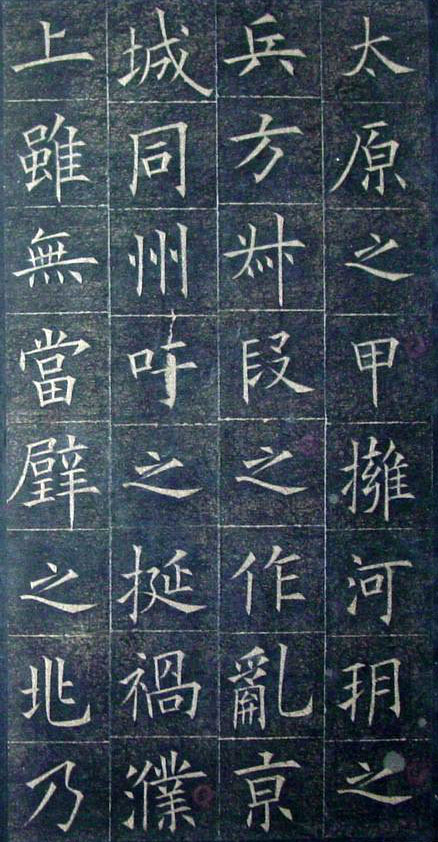 太原之甲擁河朔之
兵方叔段之作亂亰
城同州吁之挺禍濮
上雖無當璧之兆乃